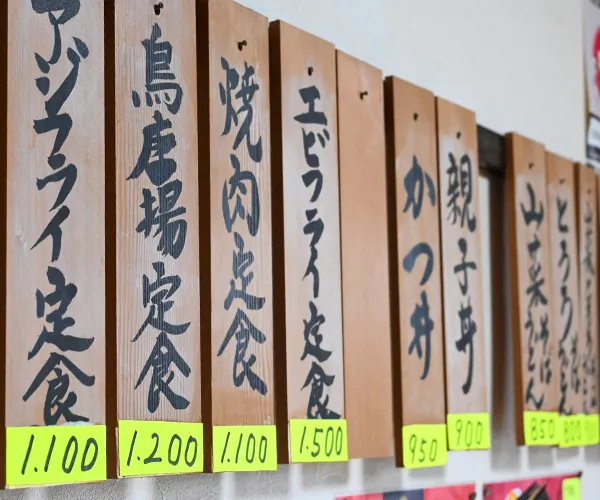 アジフライ定食
1.100
鳥唐揚定食
1.200
焼肉定食
1.100
エビフライ定食
1.500
かつ丼
950
親子丼
900
山菜そば
うどん
850
とろろそば
うどん
800